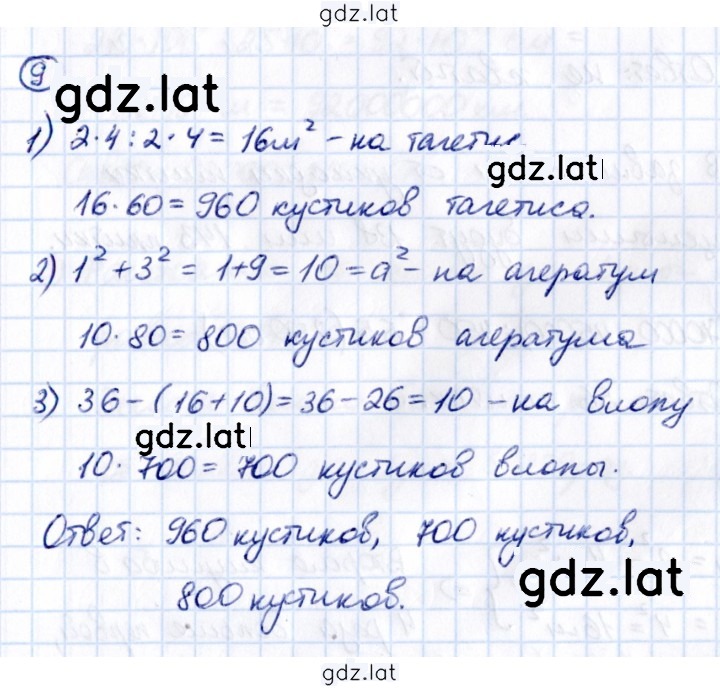 gdz.lat
9
gdz.lat
1) 2·4:2·4=16м² - на
gdz.lat
16·60=960 кустиков тагетиса.
2) 1²+3²=1+9=10=a² - на агератум
10·80=800 кустиков агератума
3) 36-(16+10)=36-26=10 - на влопу
gdz.lat
10·700=700 кустиков влопы.
Ответ: 960 кустиков, 700 кустиков,
800 кустиков.
gdz.lat
gdz.lat